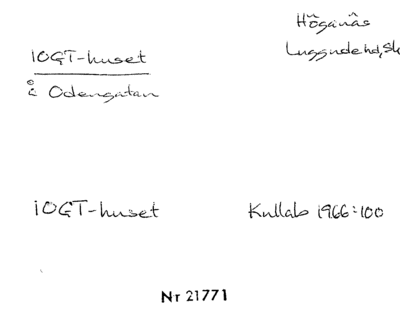 Höganäs
Luggude hd, Sk
IOGT-huset
å Odengatan
IOGT-huset
Kullab 1966:100
Nr 21771